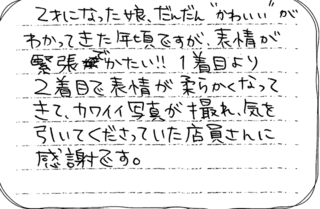 2才になった娘、だんだん"かわいい"が
わかってきた年頃ですが、表情が
緊張でかたい!! 1着目より
2着目で表情が柔らかくなって
きて、カワイイ写真が撮れ、気を
引いてくださっていた店員さんに
感謝です。